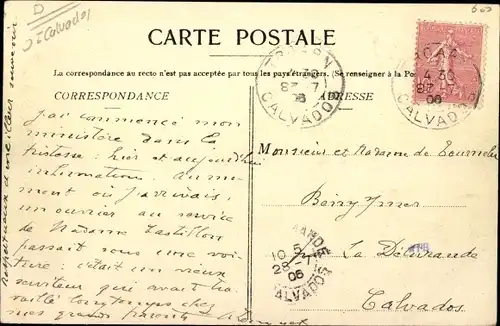 D
Calvados
CARTE POSTALE
La correspondance au recto n'est pas acceptée par tous les pays étrangers. (Se renseigner à la Pos
CORRESPONDANCE
ADRESSE
J'ai commencé mon
ministère dans la
tristesse : hier et aujourd'hui
inhumation. Au mo-
ment où j'arrivais,
un ouvrier au service
de Madame
passait sous une voi-
ture : c'était un vieux
serviteur qui avait tra-
vaillé longtemps chez
mes grands parents
respectueux d'une souvenir
Monsieur et Madame de
Beny s/mer
La Délivrande
Calvados
CALVADOS
4 30
06
CALVADOS
10
28 -7
06
CALVADOS